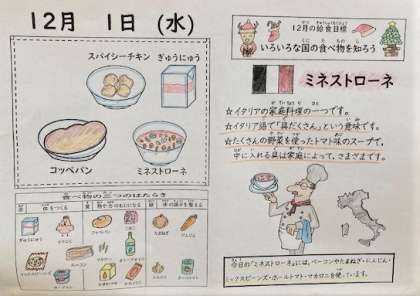 12月 1日 (水)
スパイシーチキン
ぎゅうにゅう
コッペパン
ミネストローネ
食べ物の三つのはたらき
体をつくる
ぎゅうにゅう
12月の給食目標
いろいろな国の食べ物を知ろう
ミネストローネ
☆イタリアの家庭料理の一つです。
☆イタリア語で「具だくさん」という意味です。
☆たくさんの野菜を使ったトマト味のスープで、
中に入れる具は家庭によって、さまざまです。
今日の「ミネストローネ」には、ベーコンやたまねぎ・にんじん・
ミックスビーンズ・ホールトマト・マカロニを使っています。